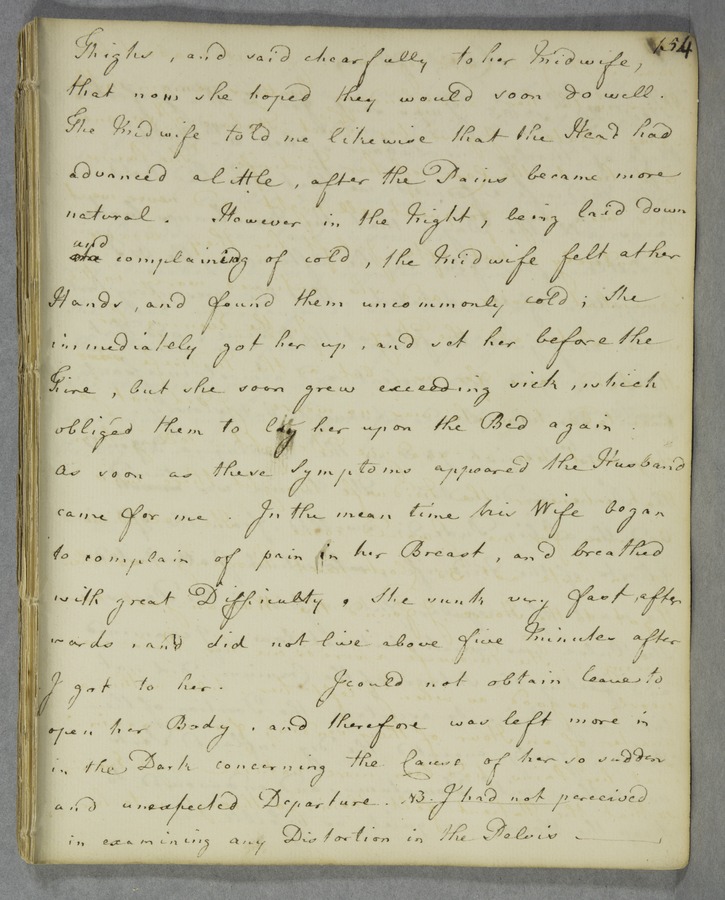 154
Thighs, and said chearfully to her Midwife,
that now she hoped they would soon do well.
The Midwife told me likewise that the Head had
advanced a little, after the Pains became more
natural. However in the Night, being laid down
and
complaining of cold, the Midwife felt at her
Hands, and found them uncommonly cold; She
immediately got her up, and set her before the
Fire, but she soon grew exceeding sick, which
obliged them to lay her upon the Bed again.
As soon as these Symptoms appeared the Husband
came for me. In the mean time his Wife began
to complain of pain in her Breast, and breathed
with great Difficulty. She sunk very fast after
wards, and did not live above five Minutes after
I got to her. I could not obtain leave to
open her Body, and therefore was left more in
in the Dark concerning the Cause of her so sudden
and unexpected Departure. NB. I had not perceived
in examining any Distortion in the Pelvis